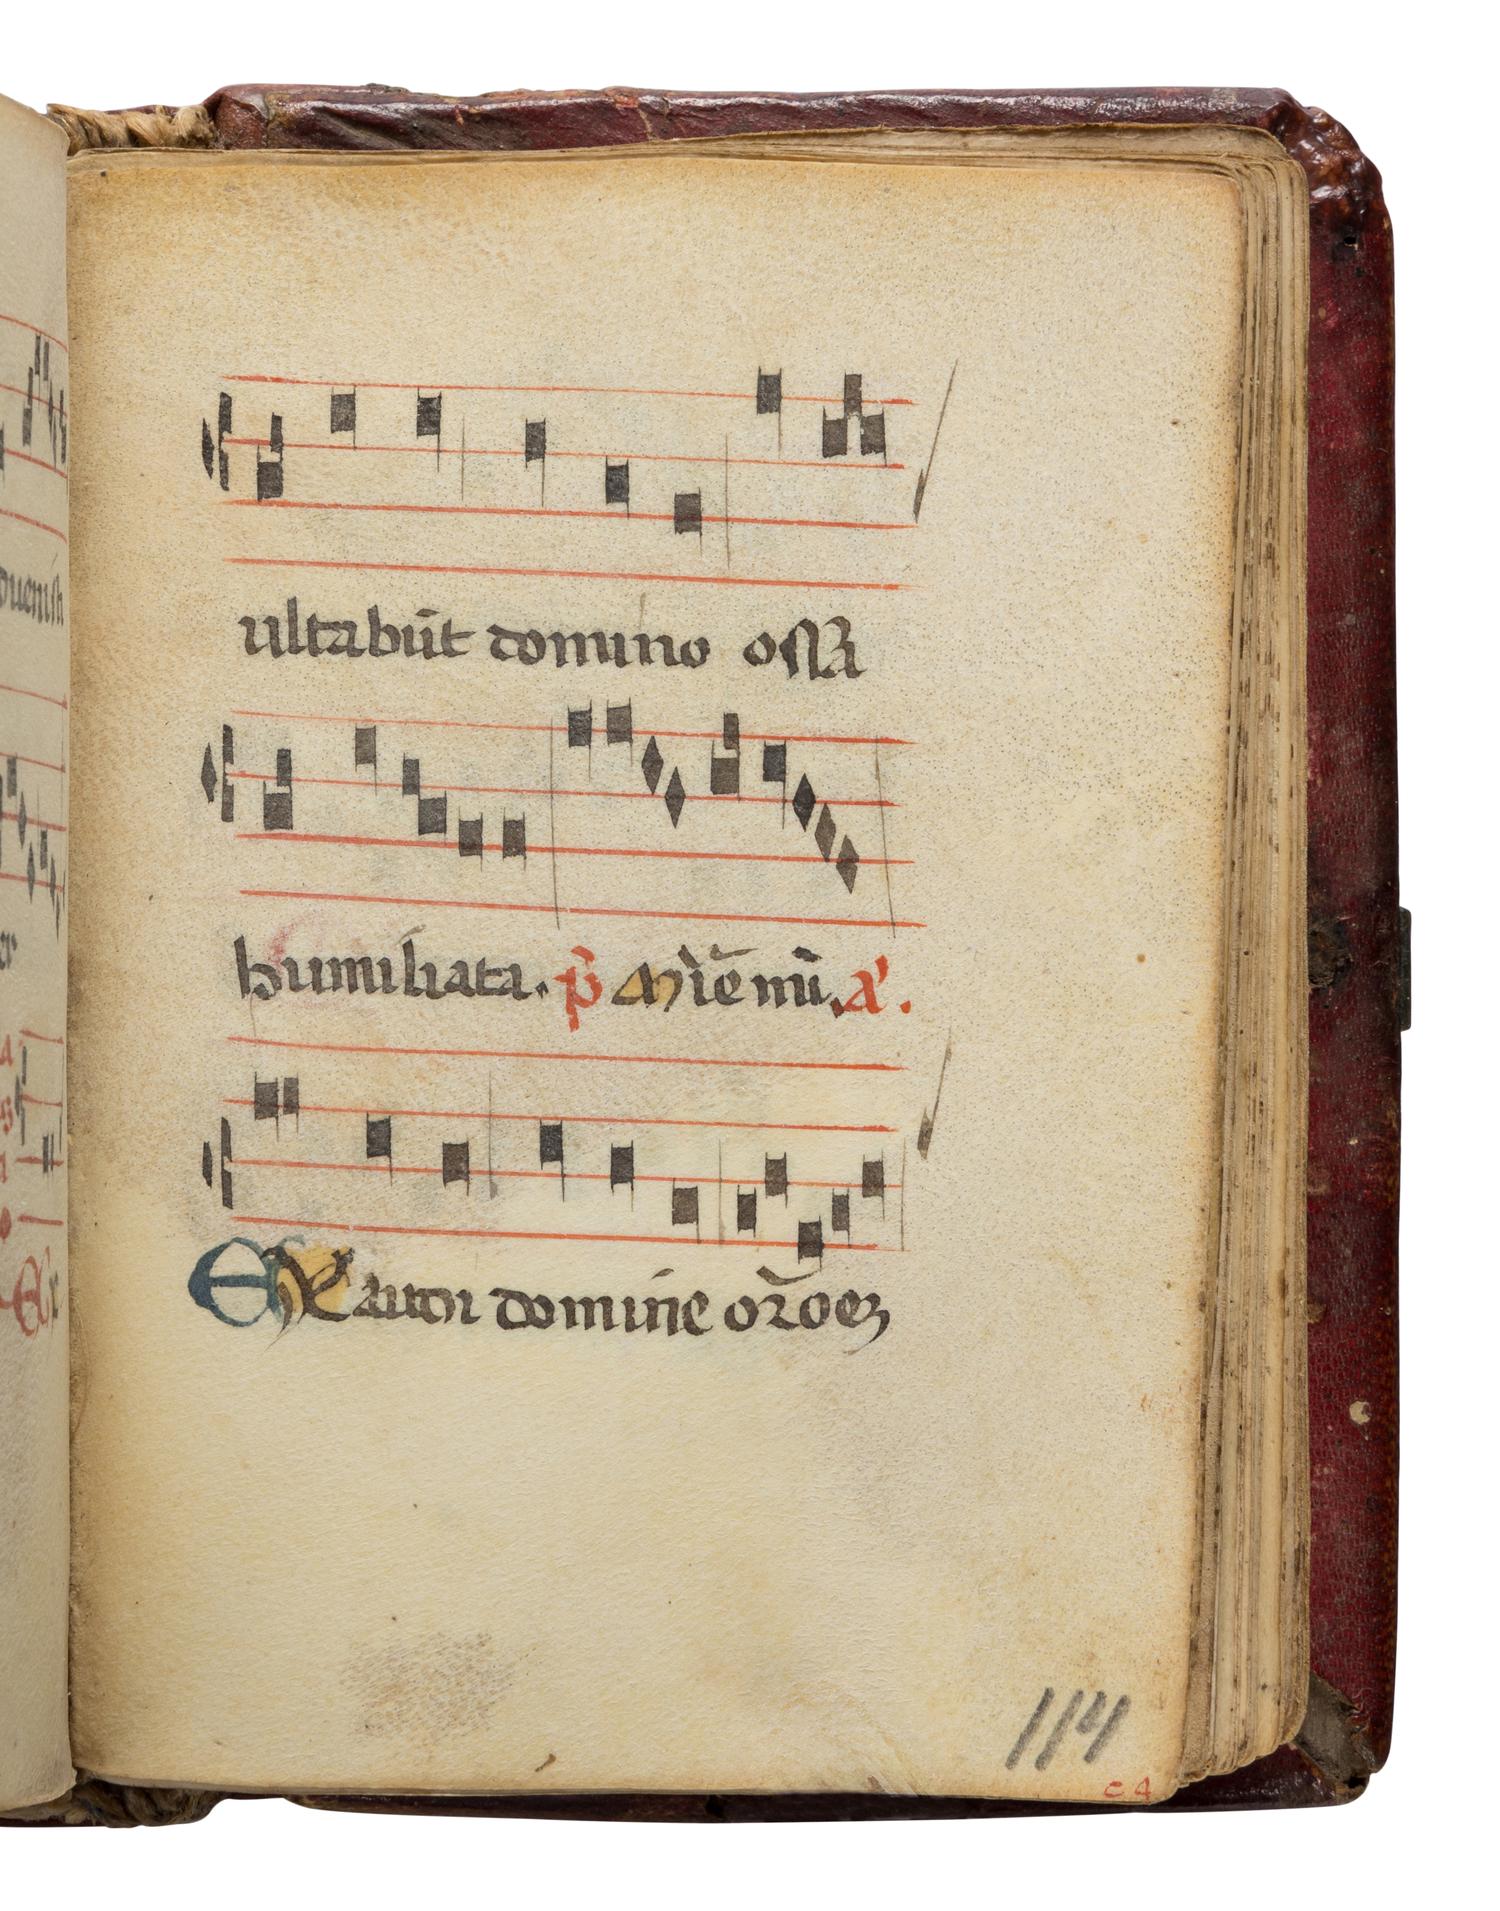 ultabūt domino ossa
humiliata. p̄s Mīẽ mū. a'.
EXaudi domine or̄oeꝫ
114
c 4